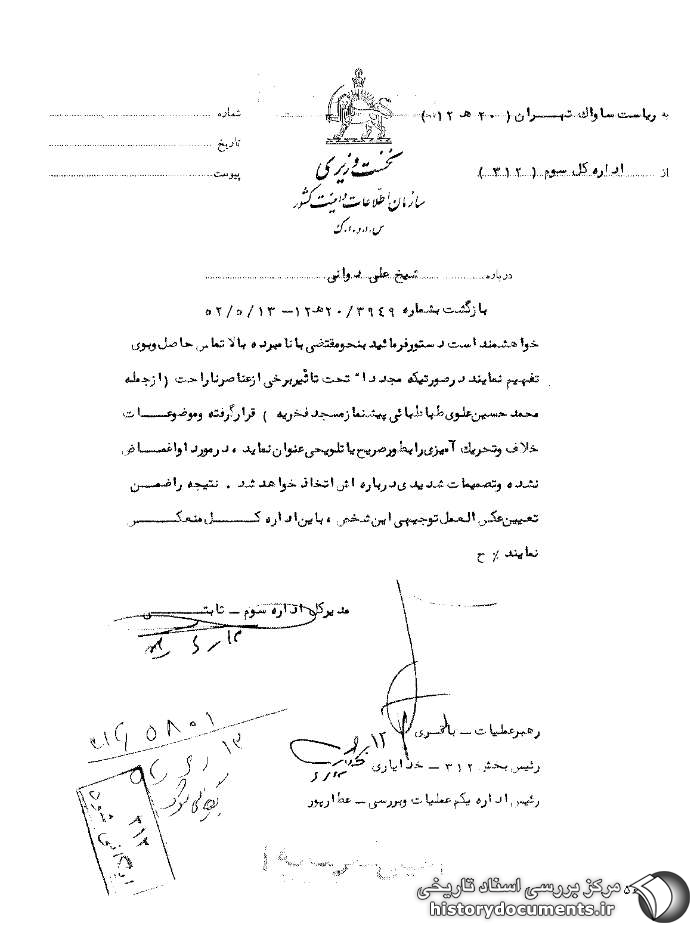 به ریاست ساواک تهـــران ( ۲۰ هـ ۱۲)
شماره
تاریخ
از اداره کل سوم ( ۳۱۲ )
پیوست
نخست وزیری
سازمان اطلاعات و امنیت کشور
س.ا.و.ا.ک
درباره شیخ علی دوانی
بازگشت بشماره ۳۹۴۹/ ۲۰هـ۱۲– ۵۲/۵/۱۳
خواهشمند است دستورفرمائید بنحومقتضی بانامبرده بالا تماس حاصل وبوی
تفهیم نمایند درصورتیکه مجددا" تحت تاثیربرخی ازعناصرناراحت (ازجمله
محمد حسین علوی طباطبائی پیشنمازمسجد فخریه ) قرارگرفته وموضوعـــات
خلاف وتحریک آمیزی رابطورصریح یاتلویحی عنوان نماید ، درمورد اواغمـــاض
نشده وتصمیمات شدیدی درباره اش اتخاذ خواهد شد . نتیجه راضمـــن
تعیین عکس العمل توجیهی این شخص ، باین اداره کـــل منعکـــس
نمایند ٪ ح
مدیرکل اداره سوم – ثابتـــی
رهبرعملیات –
رئیس بخش ۳۱۲ – خدایاری
رئیس اداره یکم عملیات وبررسی – عطارپور
۵۸۰۱
۳۱۲
بایگانی شود
مرکز بررسی اسناد تاریخی
historydocuments.ir